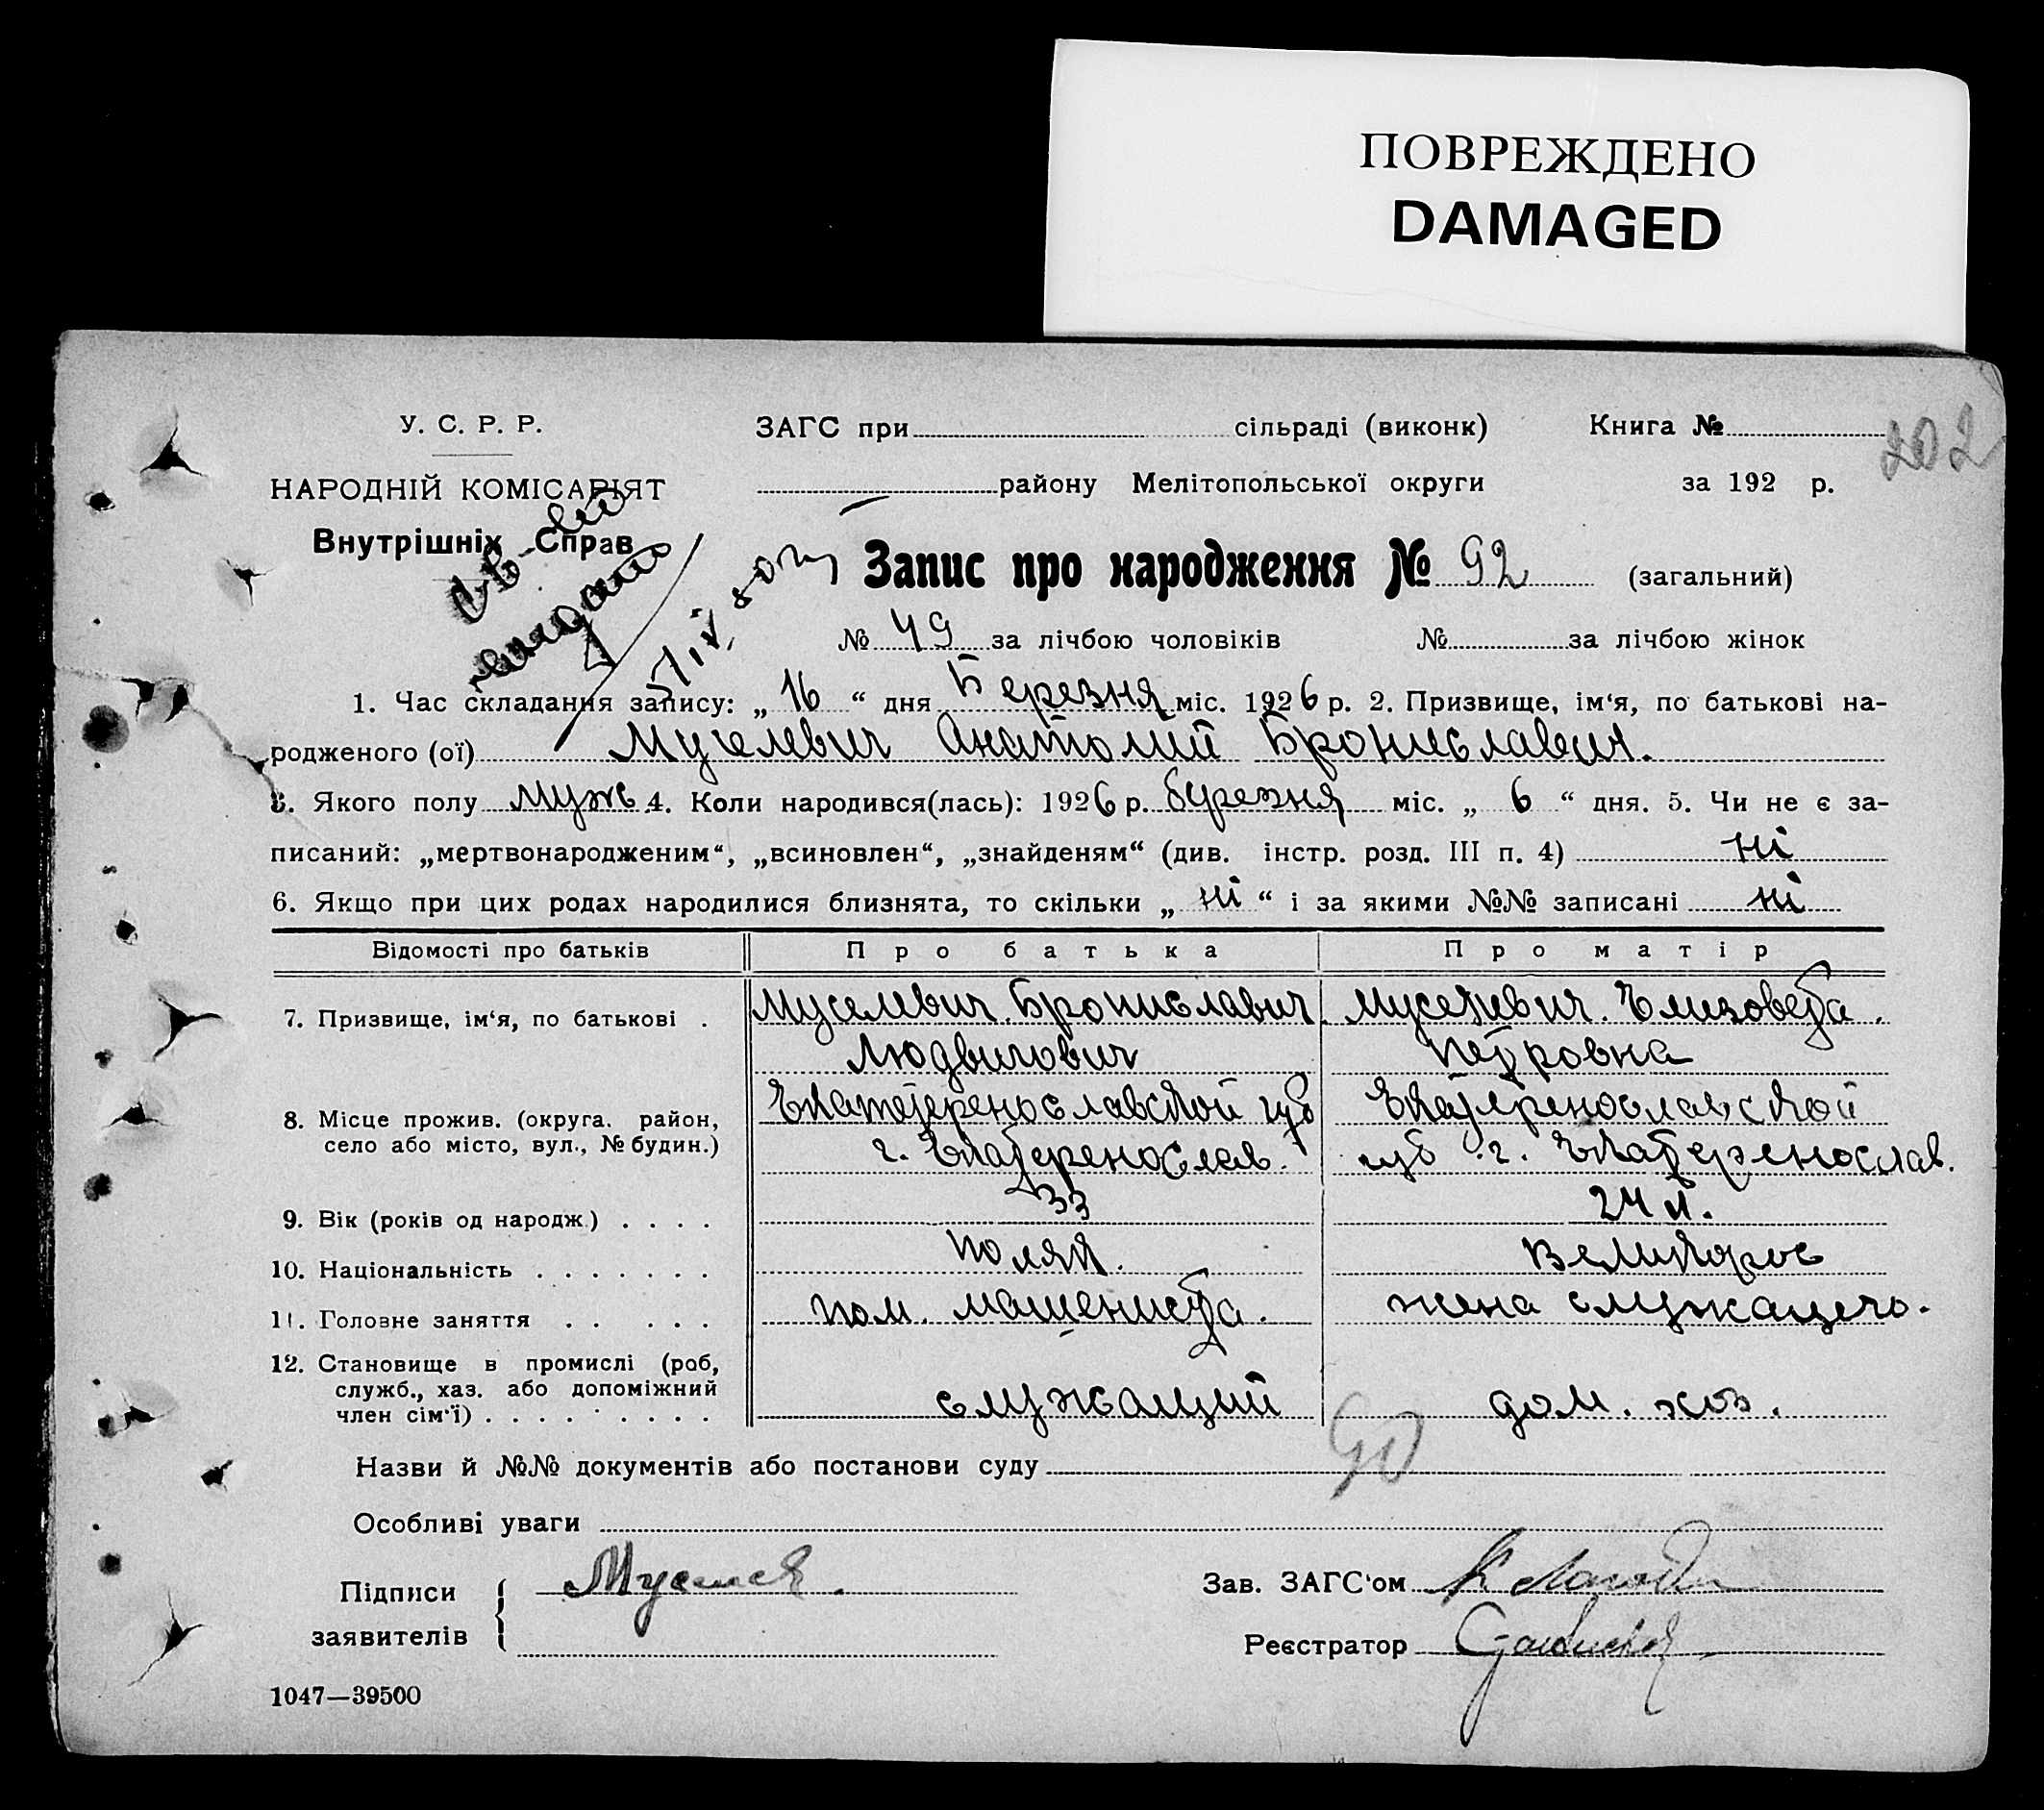 ПОВРЕЖДЕНО
DAMAGED
У. С. Р. Р.
ЗАГС при сільраді (виконк) Книга №
202
НАРОДНІЙ КОМІСАРІЯТ
району Мелітопольської округи за 192 р.
Внутрішніх Справ
Запис про народження № 92 (загальний)
№ 49 за лічбою чоловіків № за лічбою жінок
1. Час складання запису: „ 16 “ дня Березня міс. 1926 р. 2. Призвище, ім‘я, по батькові на-
родженого (ої) Муселевич Анатолий Брониславич.
3. Якого полу муж 4. Коли народився(лась): 1926 р. березня міс. „ 6 “ дня. 5. Чи не є за-
писаний: „мертвонародженим“, „всиновлен“, „знайденям“ (див. інстр. розд. III п. 4) ні
6. Якщо при цих родах народилися близнята, то скільки „ ні “ і за якими №№ записані ні
Відомості про батьків Про батька Про матір
7. Призвище, ім‘я, по батькові . Муселевич. Брониславич Муселевич. Елизовета.
Людвигович Петровна
8. Місце прожив. (округа. район, Екатеренославской губ Екатеренославской
село або місто, вул., № будин.) г. Екатеренослав. губ. г. Екатеренослав.
9. Вік (років од народж.) . . . . 33 24 л.
10. Національність . . . . . . . поляк. Великорос
11. Головне заняття . . . . . пом. машениста. жена служащего.
12. Становище в промислі (роб,
служб., хаз. або допоміжний
член сім‘ї) . . . . . . . . . служащий дом. хоз.
90
Назви й №№ документів або постанови суду
Особливі уваги
Підписи
заявителів
Зав. ЗАГС‘ом
Реєстратор
1047—39500